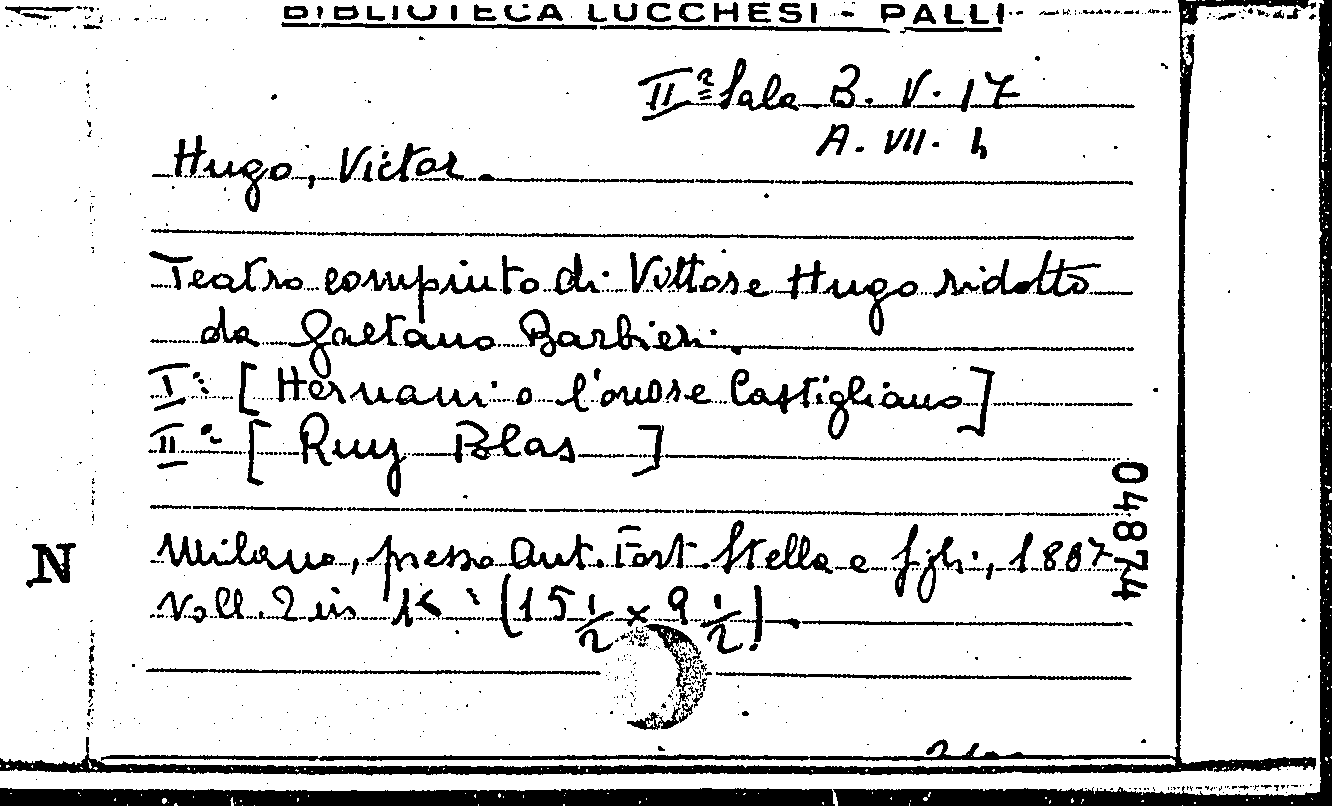 BIBLIOTECA LUCCHESI - PALLI
IIª Sala B. V. 17
A. VII. 4
Hugo, Victor.
Teatro compiuto di Vittore Hugo ridotto
da Gaetano Barbieri.
I° [Hernani o l'onore Castigliano]
II° [Ruy Blas]
04874
N
Milano, presso Ant. Fort. Stella e figli,
Voll. 2 in (15 1/2 x 9 1/2).